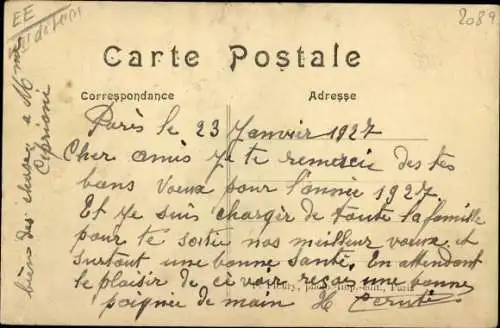 EE
2089
Carte Postale
Correspondance
Adresse
Paris le 23 Janvier 1927
Cher amis Je te remercie des tes
bons Voeux pour l'année 1927
Et Je suis chargér de toute ta famille
pour te soitie nos meilleur voeux et
surtout une bonne santé. En attendant
le plaisir de ce voire reçoe une bonne
poignée de main H
bien des choses a Mme
Ciprioni